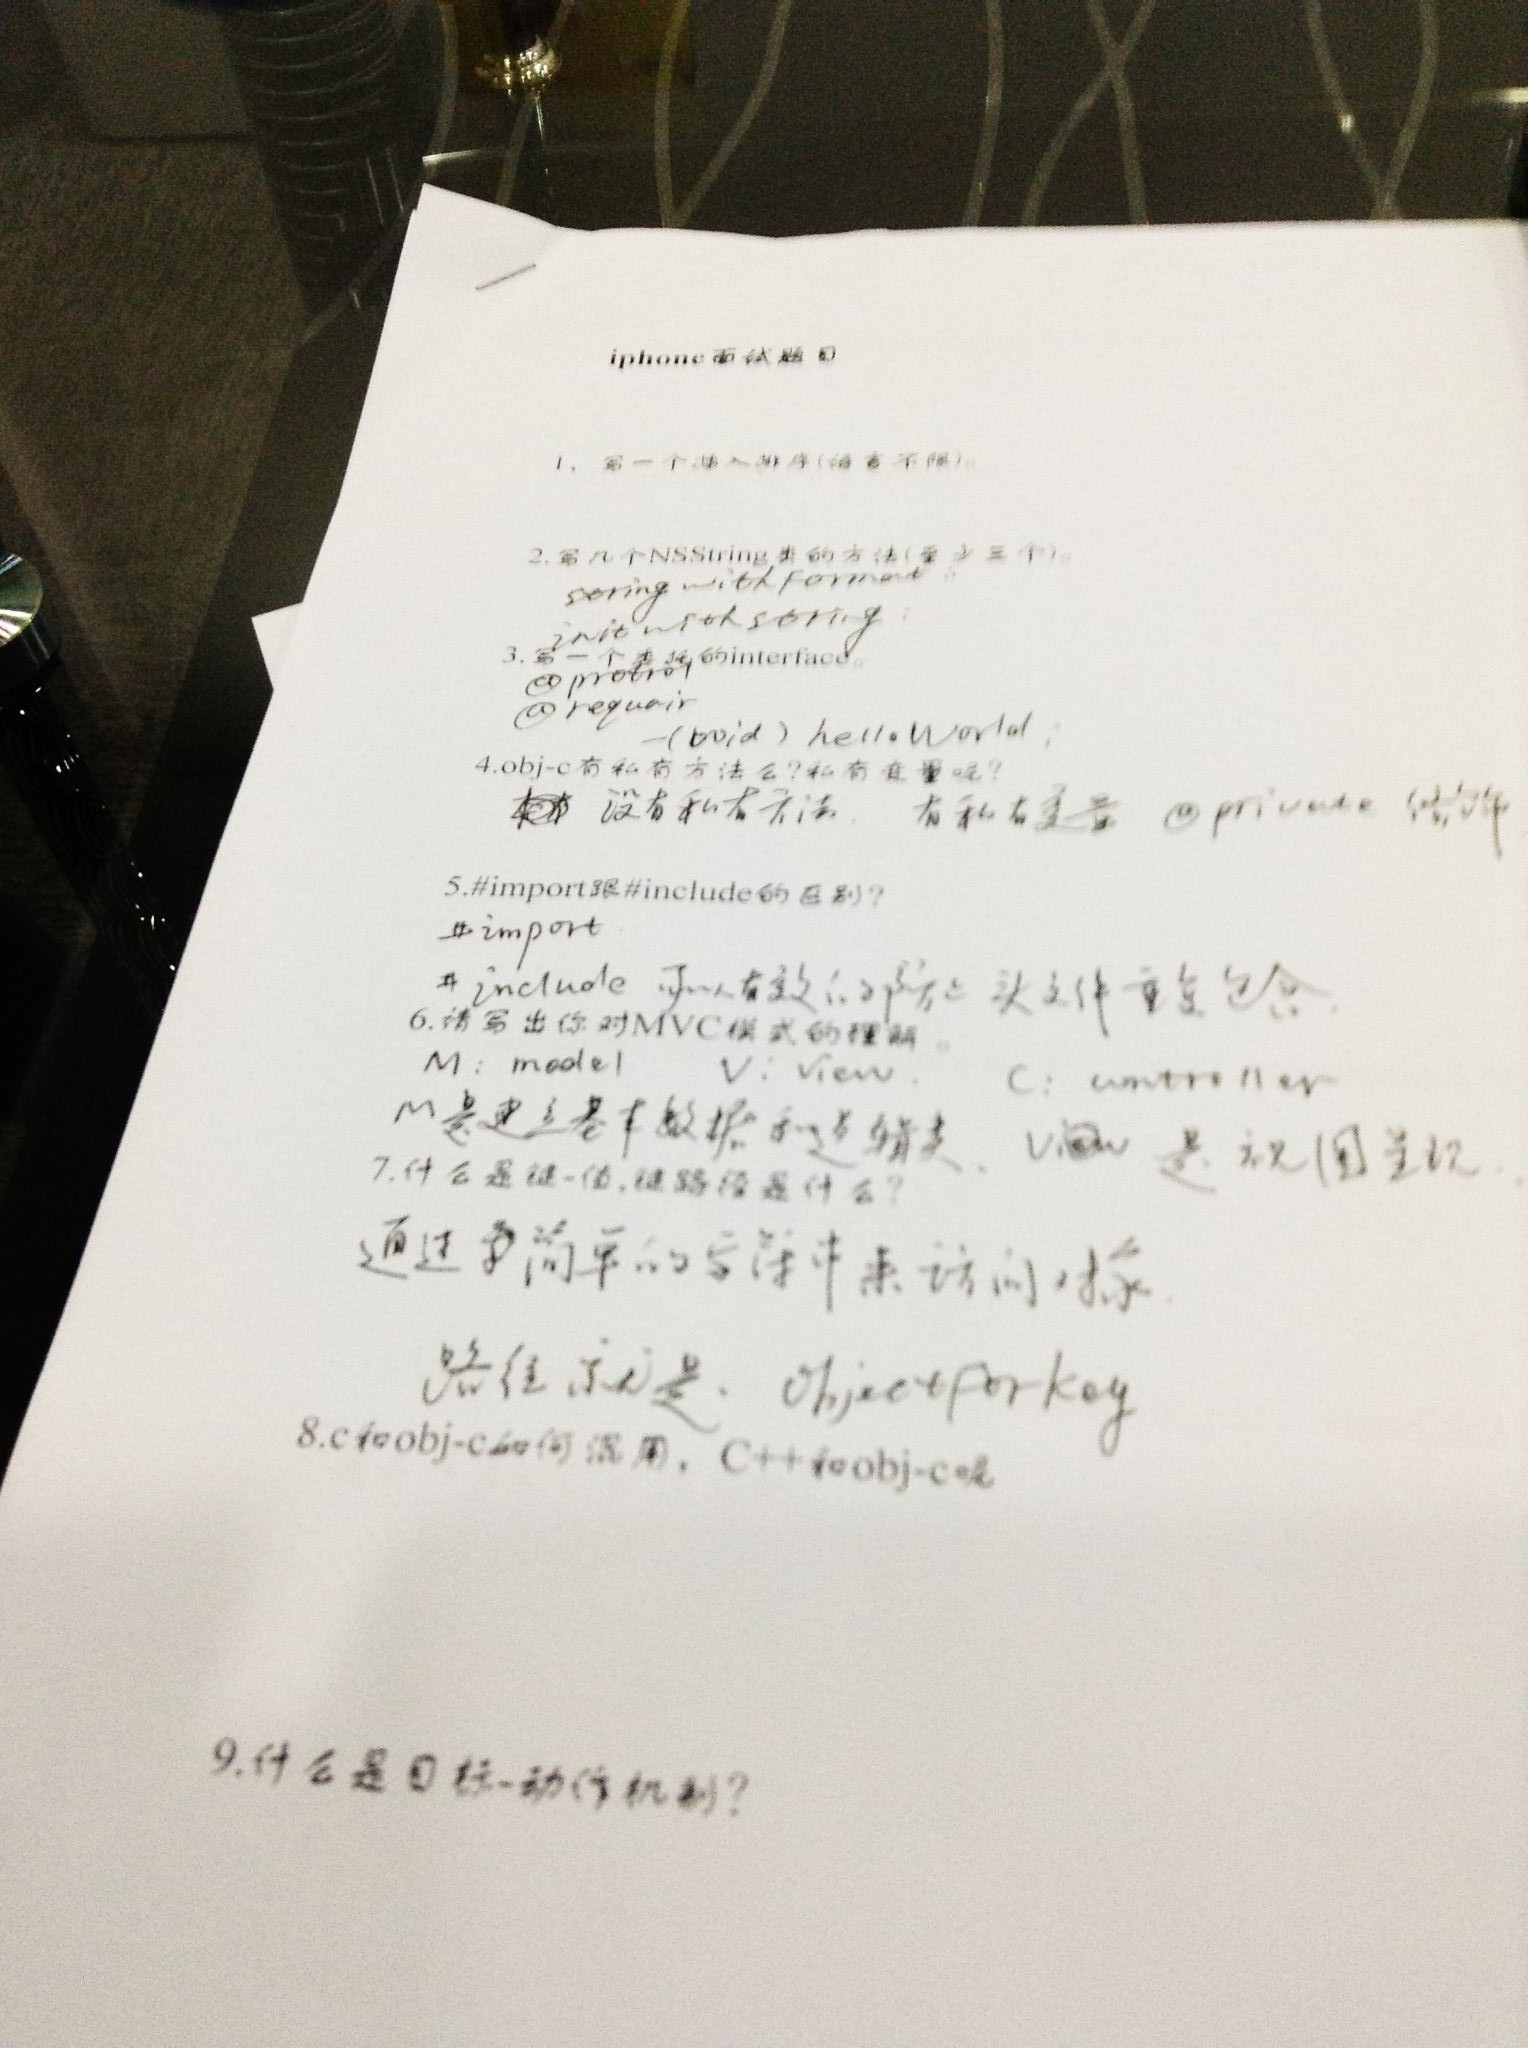 iphone面试题目
1、写一个插入排序(语言不限)。
2.写几个NSString类的方法(至少三个)。
string with Format 。
init with string ;
3.写一个委托的interface。
@protrol
@requair
-(void) hello World ;
4.obj-c有私有方法么?私有变量呢?
没有私有方法. 有私有变量 @private 修饰
5.#import跟#include的区别?
#import
#include 可以有效的防止头文件重复包含.
6.请写出你对MVC模式的理解。
M: model V: view. C: controller
M是建立基本数据和逻辑类、View 是视图呈现.
7.什么是键-值,键路径是什么?
通过 简单的字符串来访问对象.
路径就是. ObjectforKey
8.c和obj-c如何混用，C++和obj-c呢
9.什么是目标-动作机制?